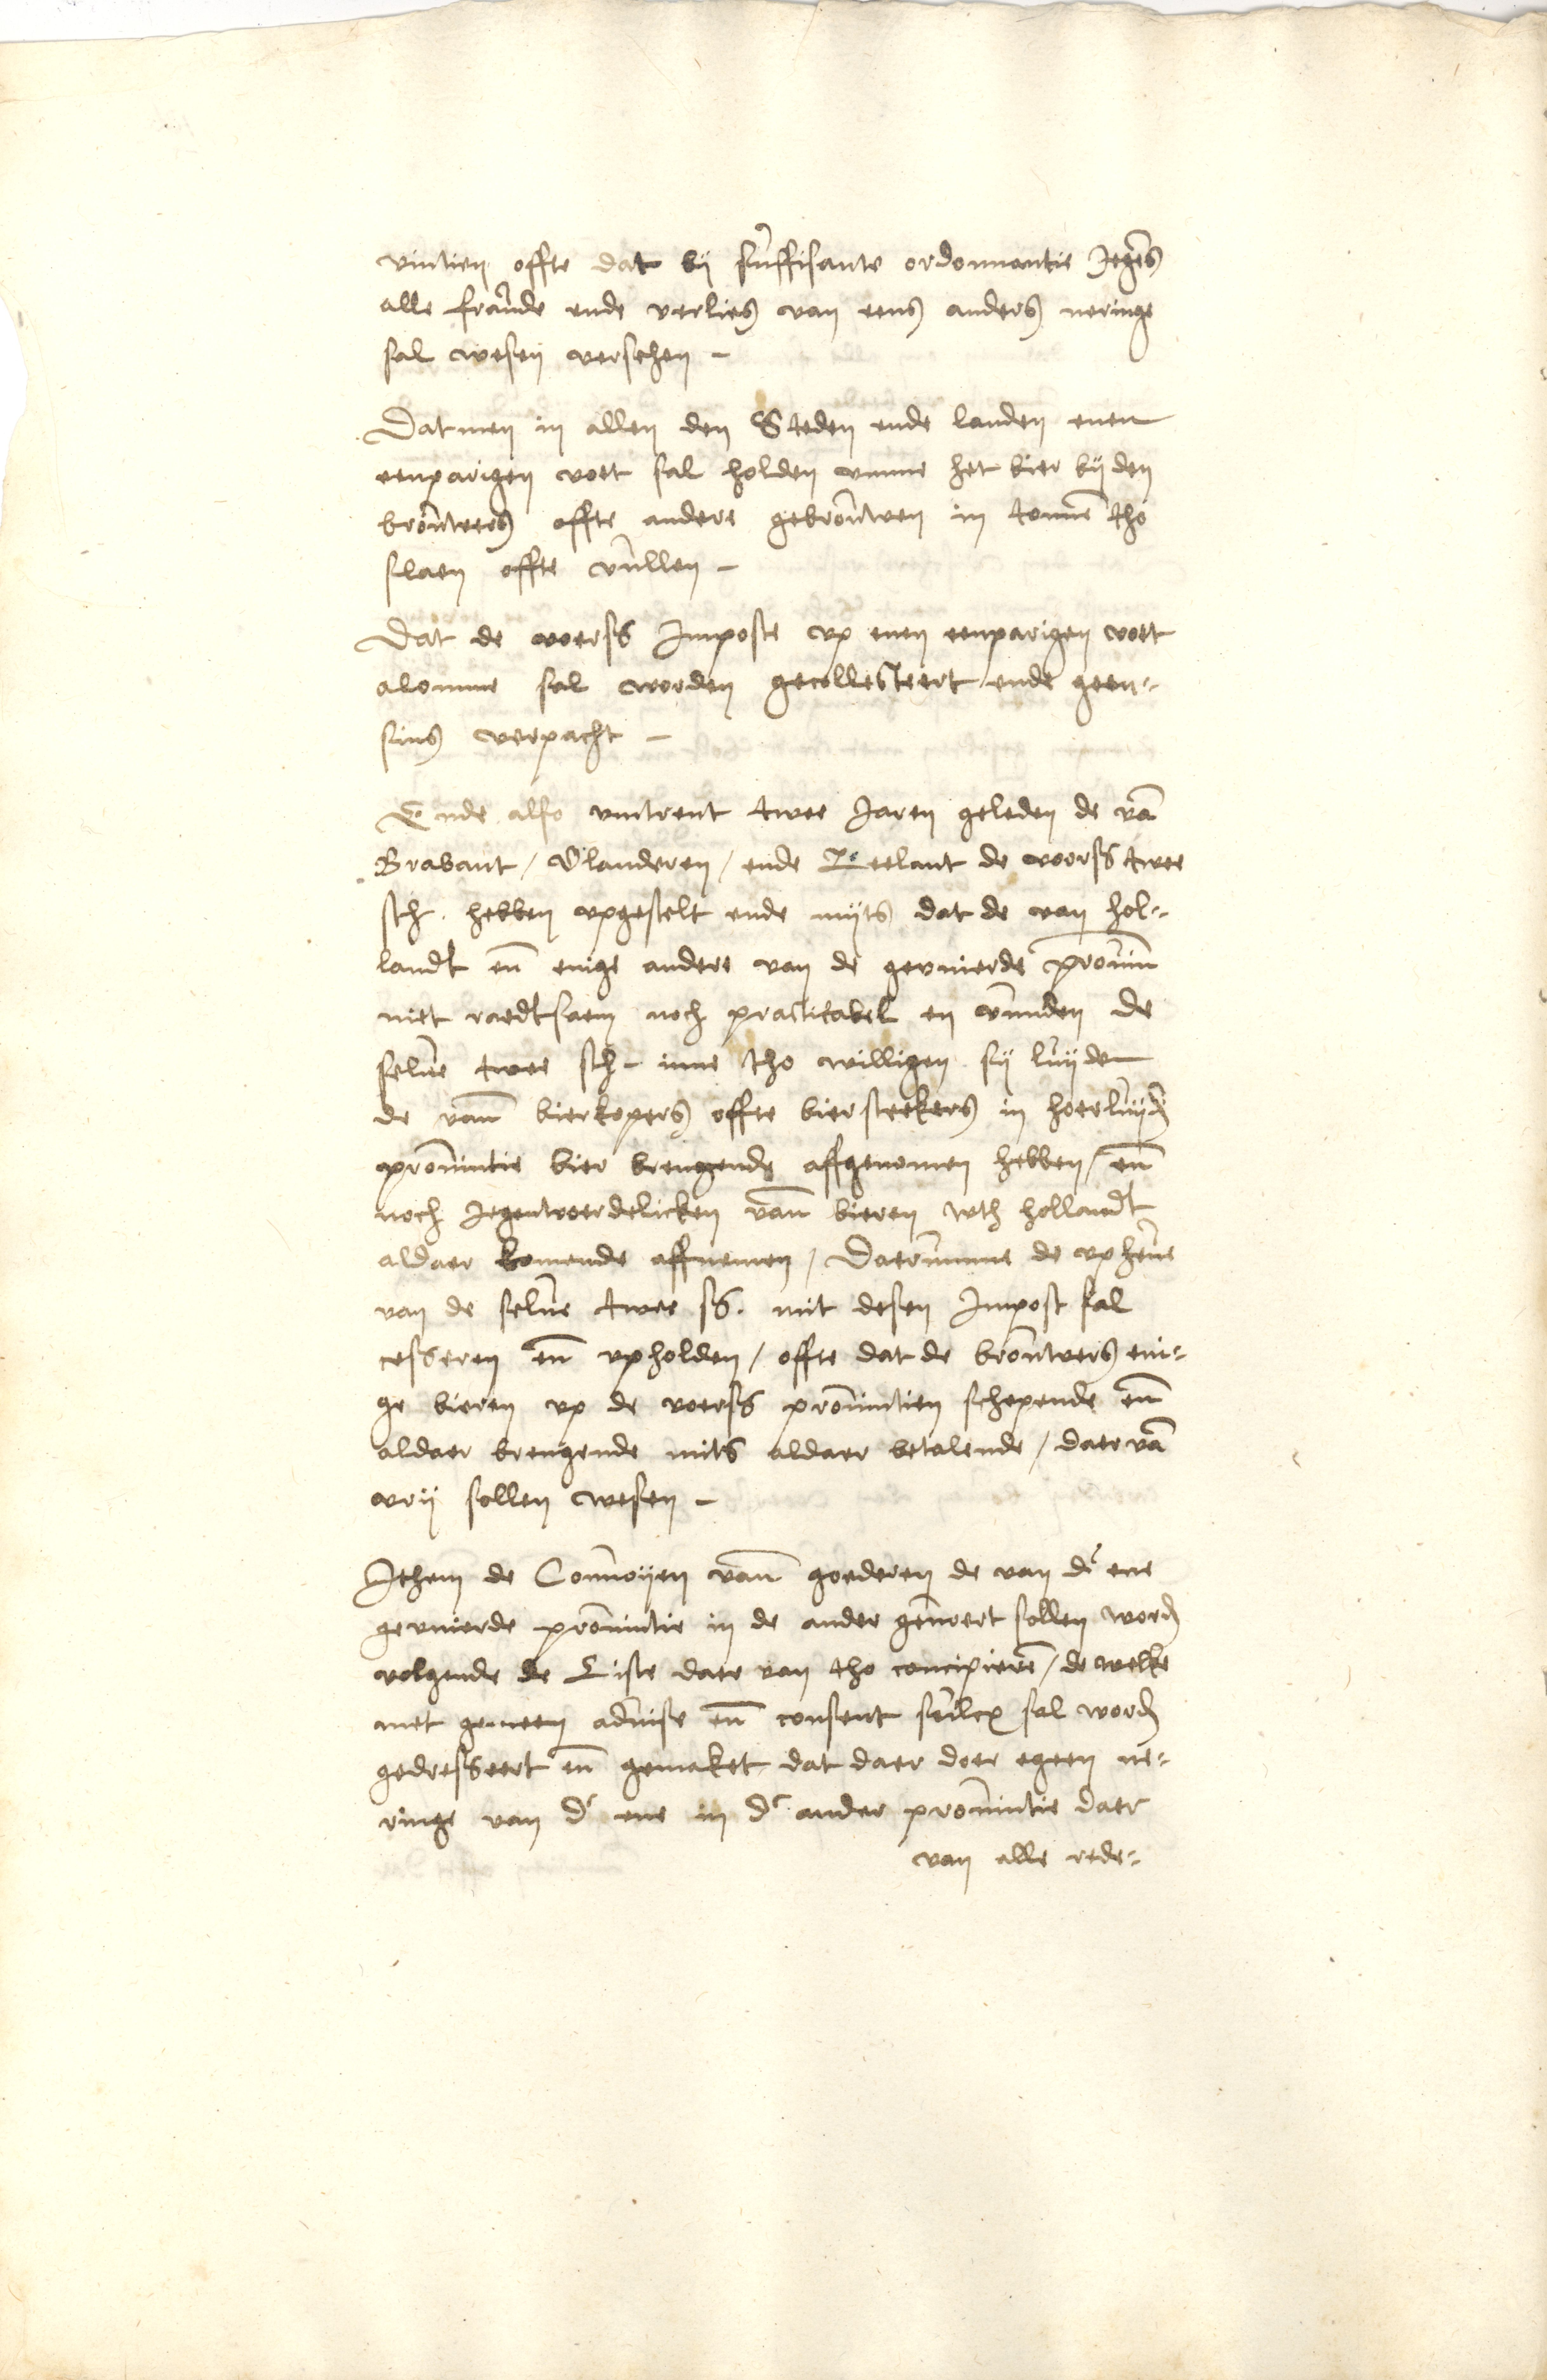 vintien offte dat bij suffisante ordonnantie Jegens
alle fraude ende verlies van eens anders neringe
sal wesen versehen -
Dat men in allen den Steden ende landen enen
eenparigen voet sal holden umme het bier bij den
brouwers offte andere gebrouwen in tonnē tho
slaen offte vullen -
Dat de voerss Imposte up enen eenparigen voet
alomme sal worden gecollecteert ende geen-
sins verpacht -
Ende also umtrent twee Jaren geleden de vā
Brabant / Vlanderen / ende Zeelant de voorss twee
sch. hebben upgestelt ende mijts dat de van hol-
landt eñ enige andere van de geunierde provin
niet raedtsaem noch practicabel en vunden de
selve twee sch - inne tho willigen sij luijden
de vann bierkopers offte biersteekers in hoerluijd
provintie bier brengende affgenomen hebben / eñ
noch Jegenwoerdelicken vann bieren wth hollandt
aldaer komende affnemen / Daerumme de upheve
van de selve twee ss. mit desen Impost sal
cesseren eñ upholden / offte dat de brouwers eni-
ge bieren up de voerss provintien schepende eñ
aldaer brengende mits aldaer betalende / daer vā
vrij sollen wesen -
Ithem de Convoijen vann goederen de van dʳ ene
geunierde provintie in de ander gevoert sollen word
volgende de Liste daer van tho concipierē / de welke
met gemeen advise eñ consent sulcx sal word
gedresseert eñ gemaket dat daer doer egeen ne-
ringe van dʳ ene in dʳ ander provintie daer
van alle rede-